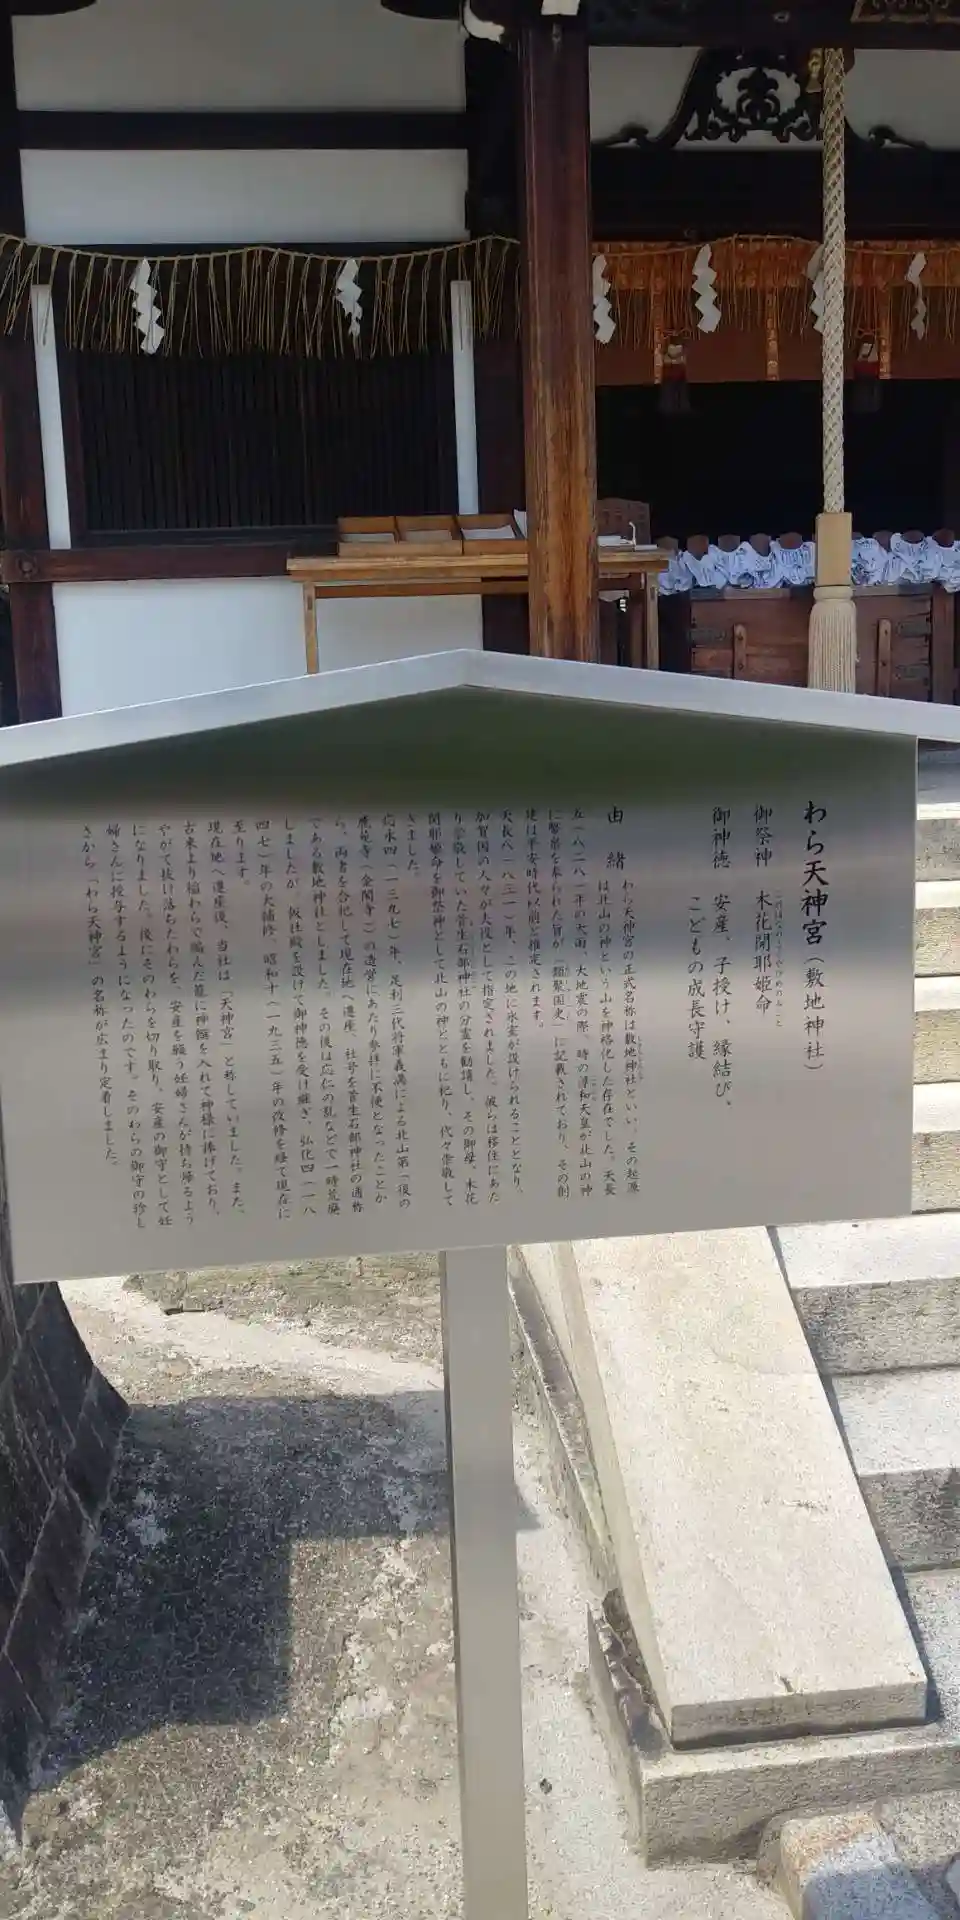 わら天神宮（敷地神社）
御祭神　木花開耶姫命
御神徳　安産、子授け、縁結び、
こどもの成長守護
由　緒
わら天神宮の正式名称は敷地神社といい、その起源
は北山の神という山を神格化した存在でした。天長
五（八二八）年の大雨、大地震の際、時の淳和天皇が北山の神
に幣帛を奉られた旨が「類聚国史」に記載されており、その創
建は平安時代以前と推定されます。
天長八（八三一）年、この地に氷室が設けられることとなり、
加賀国の人々が夫役として指定されました。彼らは移住にあた
り崇敬していた菅生石部神社の分霊を勧請し、その御母、木花
開耶姫命を御祭神として北山の神とともに祀り、代々崇敬して
きました。
応永四（一三九七）年、足利三代将軍義満による北山第（後の
鹿苑寺（金閣寺））の造営にあたり参拝に不便となったことか
ら、両者を合祀して現在地へ遷座、社号を菅生石部神社の通称
である敷地神社としました。その後は応仁の乱などで一時荒廃
しましたが、仮社殿を設けて御神徳を受け継ぎ、弘化四（一八
四七）年の大補修、昭和十（一九三五）年の改修を経て現在に
至ります。
現在地へ遷座後、当社は「天神宮」と称していました。また、
古来より稲わらで編んだ籠に神饌を入れて神様に捧げており、
やがて抜け落ちたわらを、安産を願う妊婦さんが持ち帰るよう
になりました。後にそのわらを切り取り、安産の御守として妊
婦さんに授与するようになったのです。そのわらの御守の珍し
さから「わら天神宮」の名称が広まり定着しました。